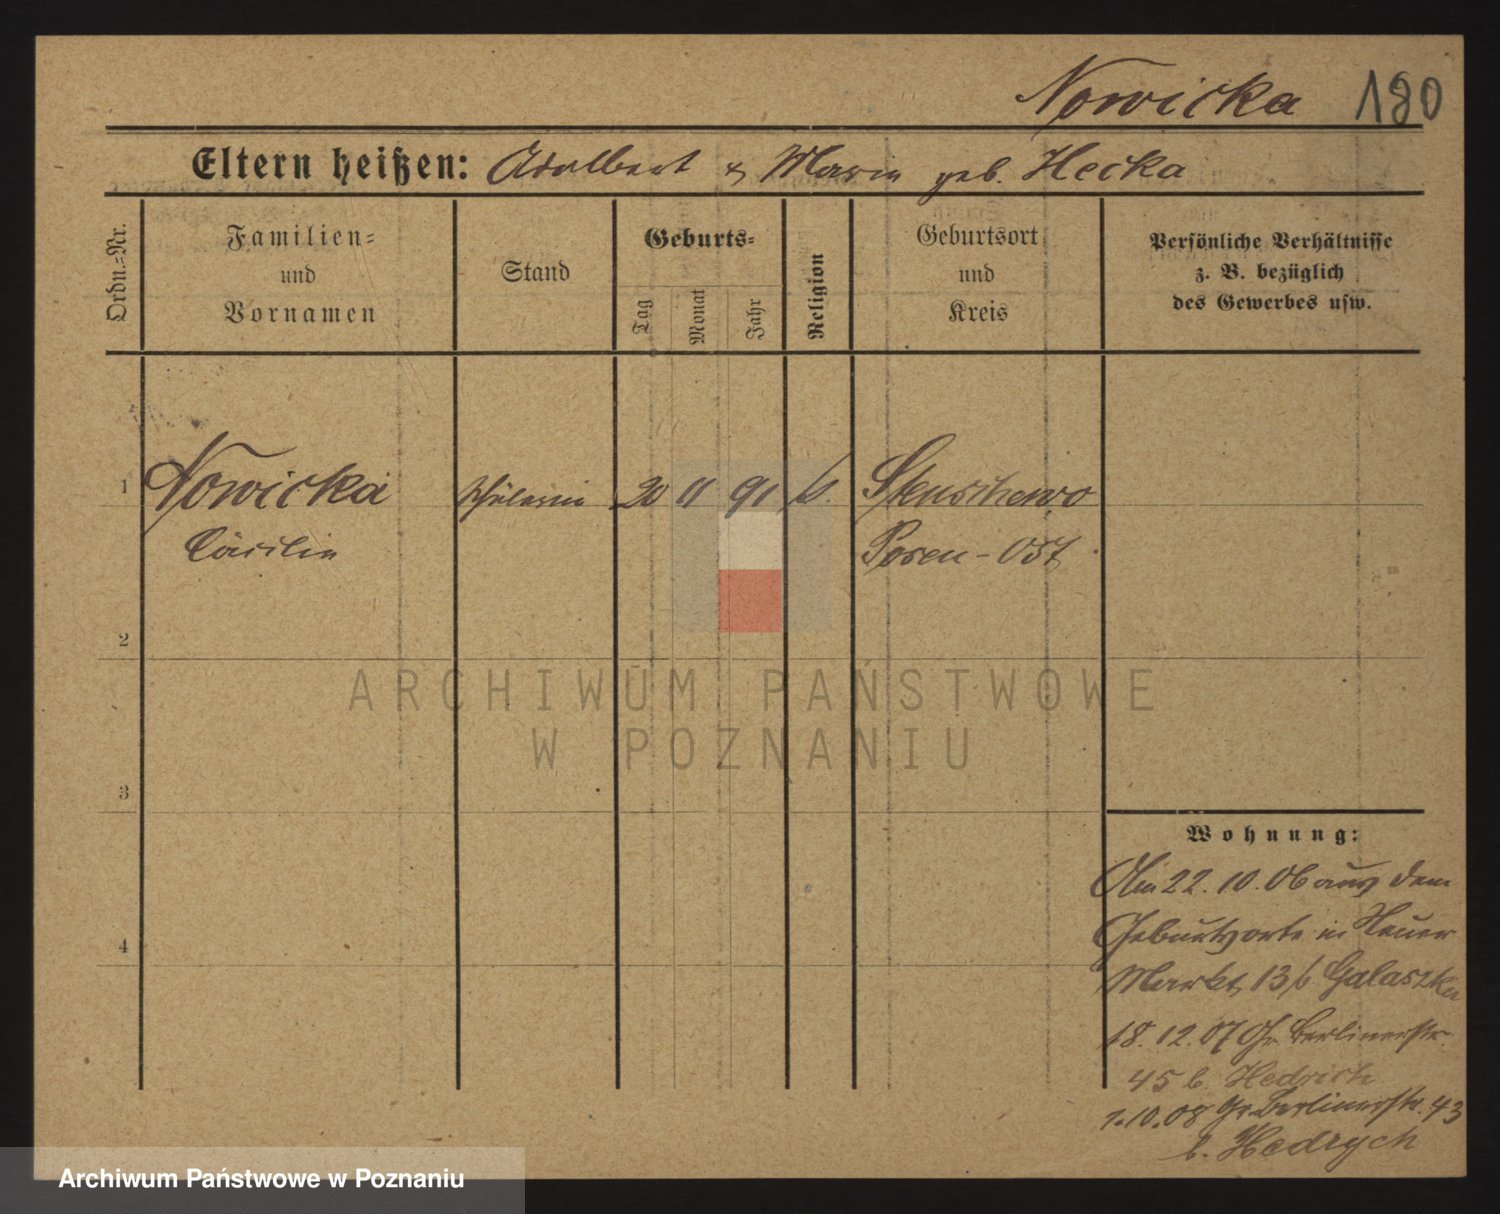 Nowicka 180
Eltern heißen: Adalbert & Marie geb. Hecka
Ordn.-Nr.
Familien-
und
Vornamen
Stand
Geburts-
Tag
Monat
Jahr
Religion
Geburtsort
und
Kreis
Persönliche Verhältnisse
z. B. bezüglich
des Gewerbes usw.
1 Nowicka Schülerin 20 11 91 k. Stenschewo
Cäcilie Posen-Ost
2
3
4
Wohnung:
Am 22. 10. 06 aus dem
Geburtsorte in Neuer
Markt 13 b Galaszka
18. 12. 07 Gr. Berlinerstr.
45 b. Hedrich
1.10.08 Gr. Berlinerstr. 43
b. Hedrych
ARCHIWUM PAŃSTWOWE
W POZNANIU
Archiwum Państwowe w Poznaniu